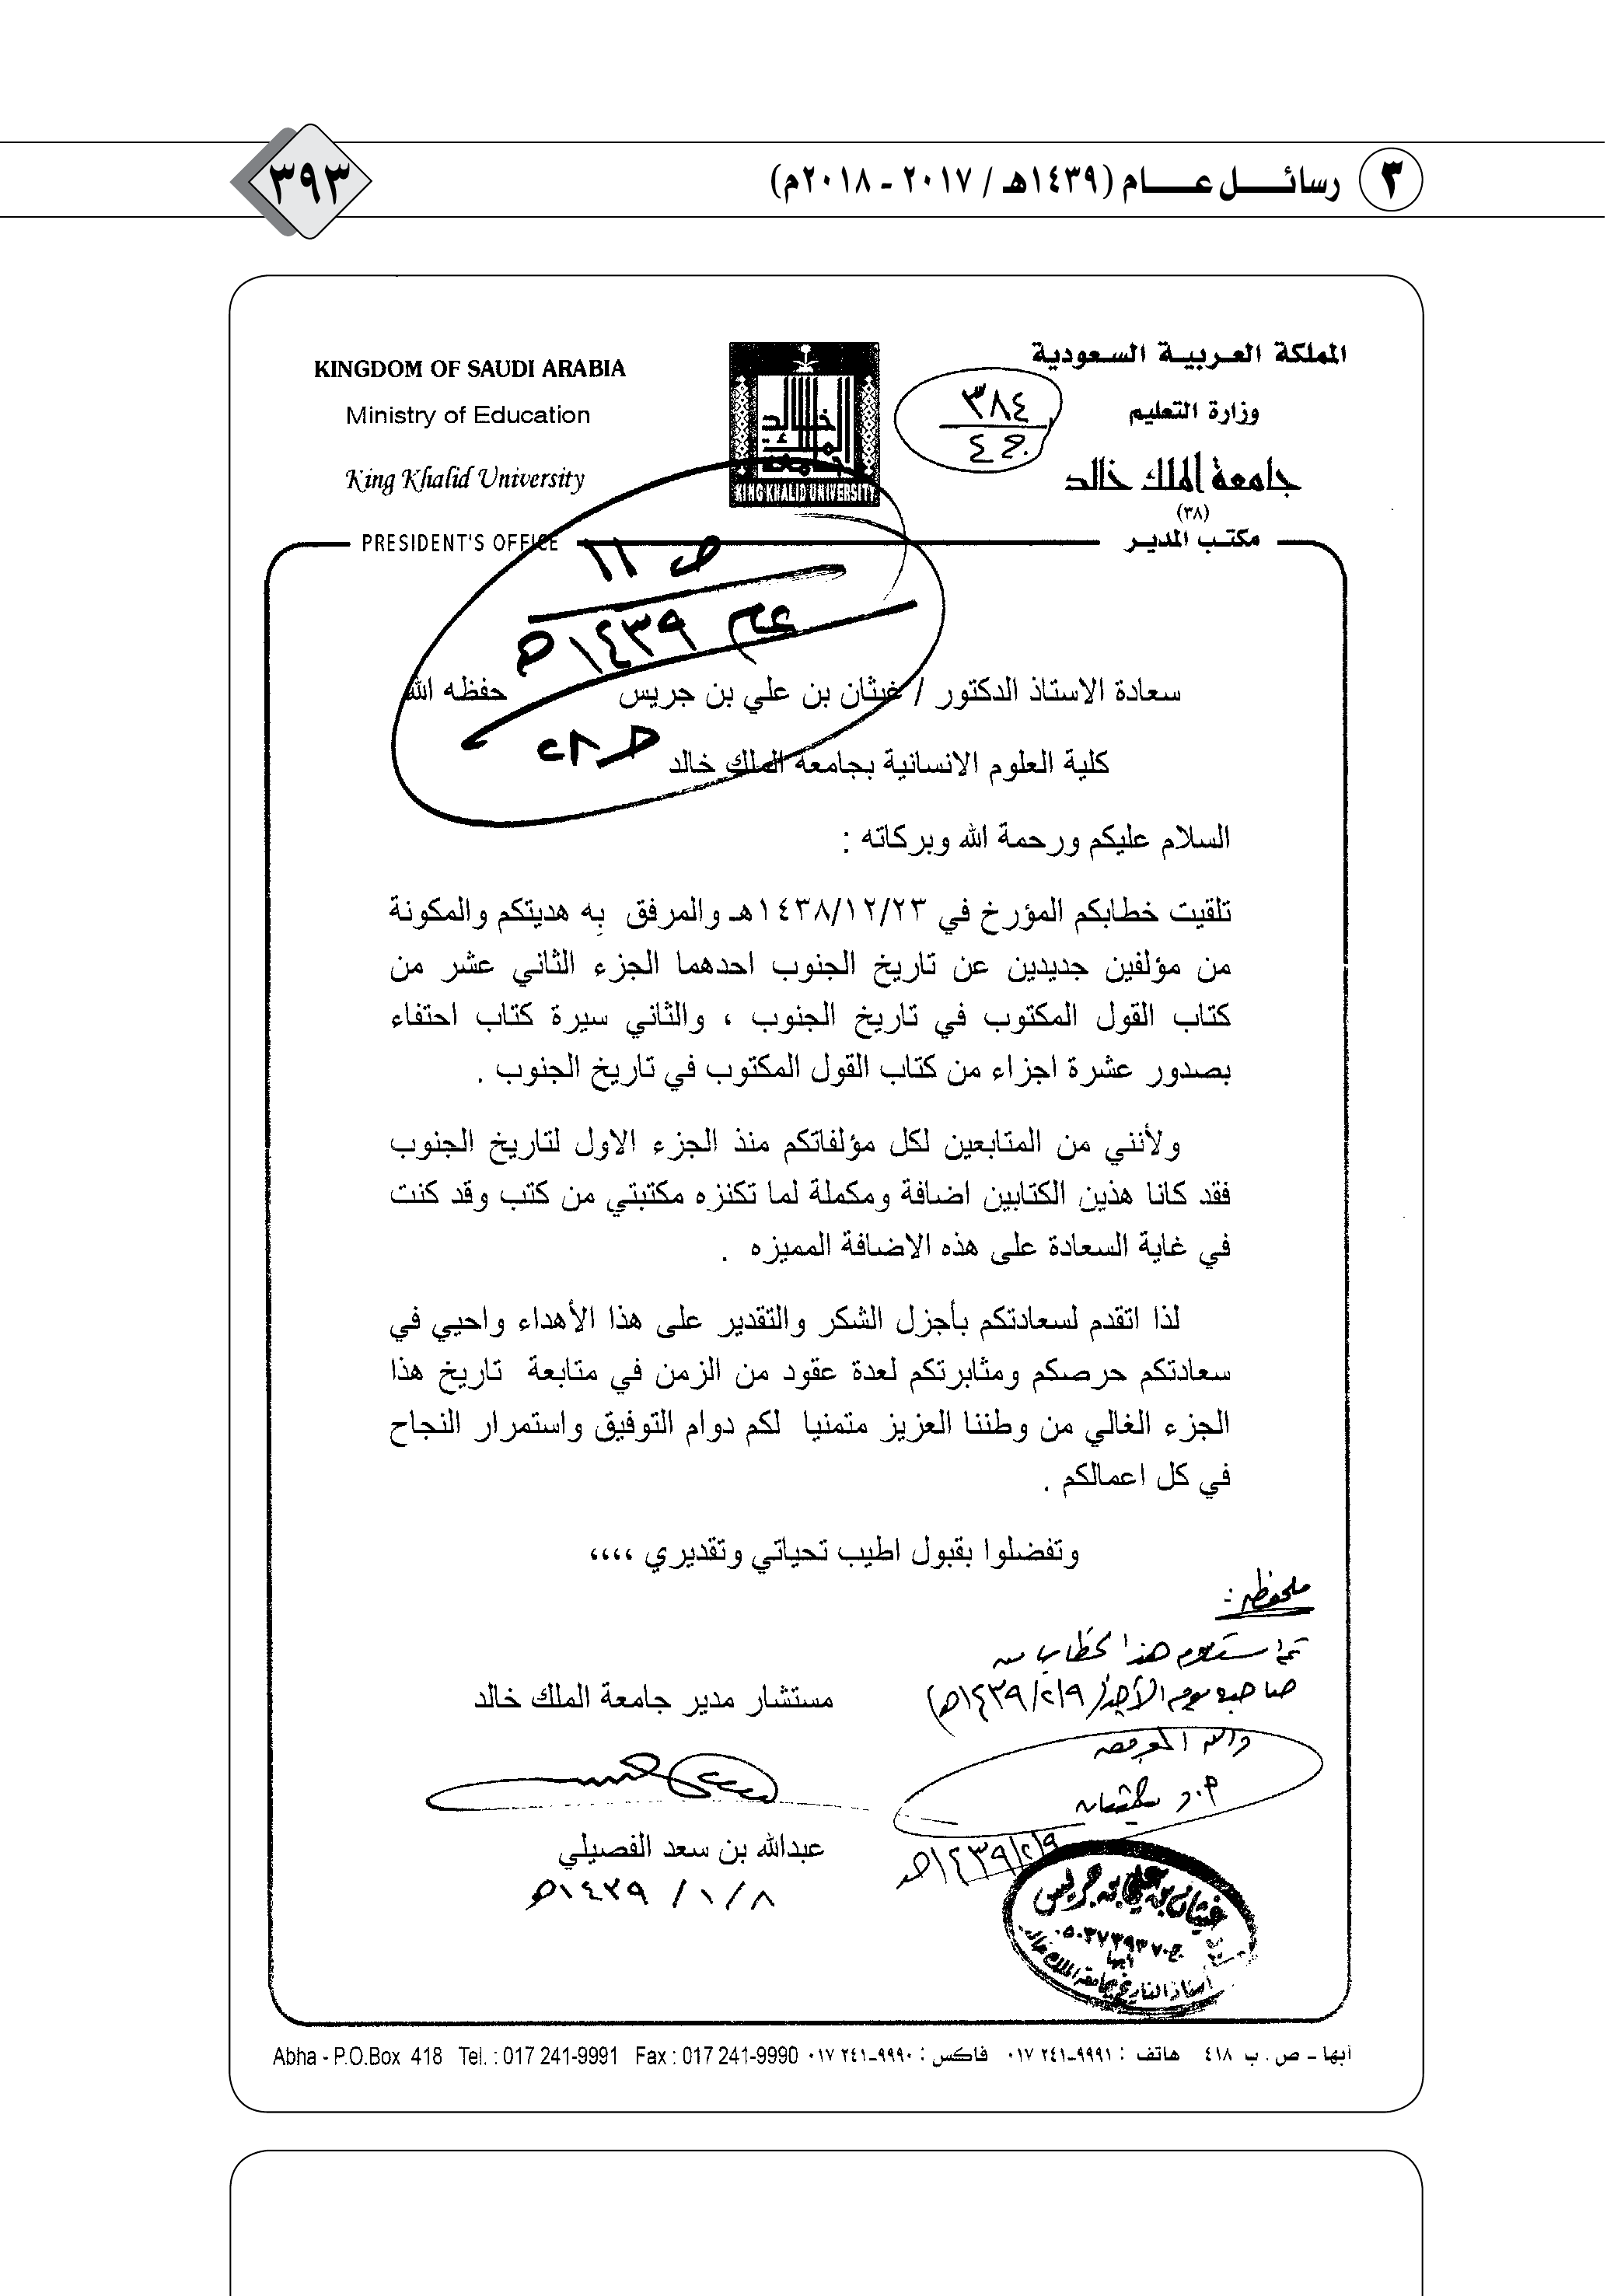 ٣ رسائل عام (١٤٣٩هـ / ٢٠١٧ - ٢٠١٨م)
٣٩٣
المملكة العربية السعودية
وزارة التعليم
جامعة الملك خالد
(٣٨)
مكتب المدير
٣٨٤
ج ٤
KING KHALID UNIVERSITY
KINGDOM OF SAUDI ARABIA
Ministry of Education
King Khalid University
PRESIDENT'S OFFICE
عام ١٤٣٩هـ
سعادة الاستاذ الدكتور / غيثان بن علي بن جريس حفظه الله
كلية العلوم الانسانية بجامعة الملك خالد
السلام عليكم ورحمة الله وبركاته :
تلقيت خطابكم المؤرخ في ١٤٣٨/١٢/٢٣هـ والمرفق بِه هديتكم والمكونة
من مؤلفين جديدين عن تاريخ الجنوب احدهما الجزء الثاني عشر من
كتاب القول المكتوب في تاريخ الجنوب ، والثاني سيرة كتاب احتفاء
بصدور عشرة اجزاء من كتاب القول المكتوب في تاريخ الجنوب .
ولأنني من المتابعين لكل مؤلفاتكم منذ الجزء الاول لتاريخ الجنوب
فقد كانا هذين الكتابين اضافة ومكملة لما تكنزه مكتبتي من كتب وقد كنت
في غاية السعادة على هذه الاضافة المميزه .
لذا اتقدم لسعادتكم بأجزل الشكر والتقدير على هذا الأهداء واحيي في
سعادتكم حرصكم ومثابرتكم لعدة عقود من الزمن في متابعة تاريخ هذا
الجزء الغالي من وطننا العزيز متمنيا لكم دوام التوفيق واستمرار النجاح
في كل اعمالكم .
وتفضلوا بقبول اطيب تحياتي وتقديري ،،،،
ملحوظة :
تم استلام هذا الخطاب من
صاحبه يوم الأحد (١٤٣٩/٢/٩هـ)
والله الموفق
أ.د غيثان
١٤٣٩/٢/٩هـ
مستشار مدير جامعة الملك خالد
عبدالله بن سعد الفصيلي
١٤٣٩/١/٨هـ
غيثان بن علي بن جريس
ج ٠٥٠٣٧٣٩٣٧٠
أبها
أستاذ التاريخ بجامعة الملك خالد
Abha - P.O.Box 418 Tel. : 017 241-9991 Fax : 017 241-9990 أبها - ص . ب ٤١٨ هاتف : ٩٩٩١-٢٤١ ٠١٧ فاكس : ٩٩٩٠-٢٤١ ٠١٧